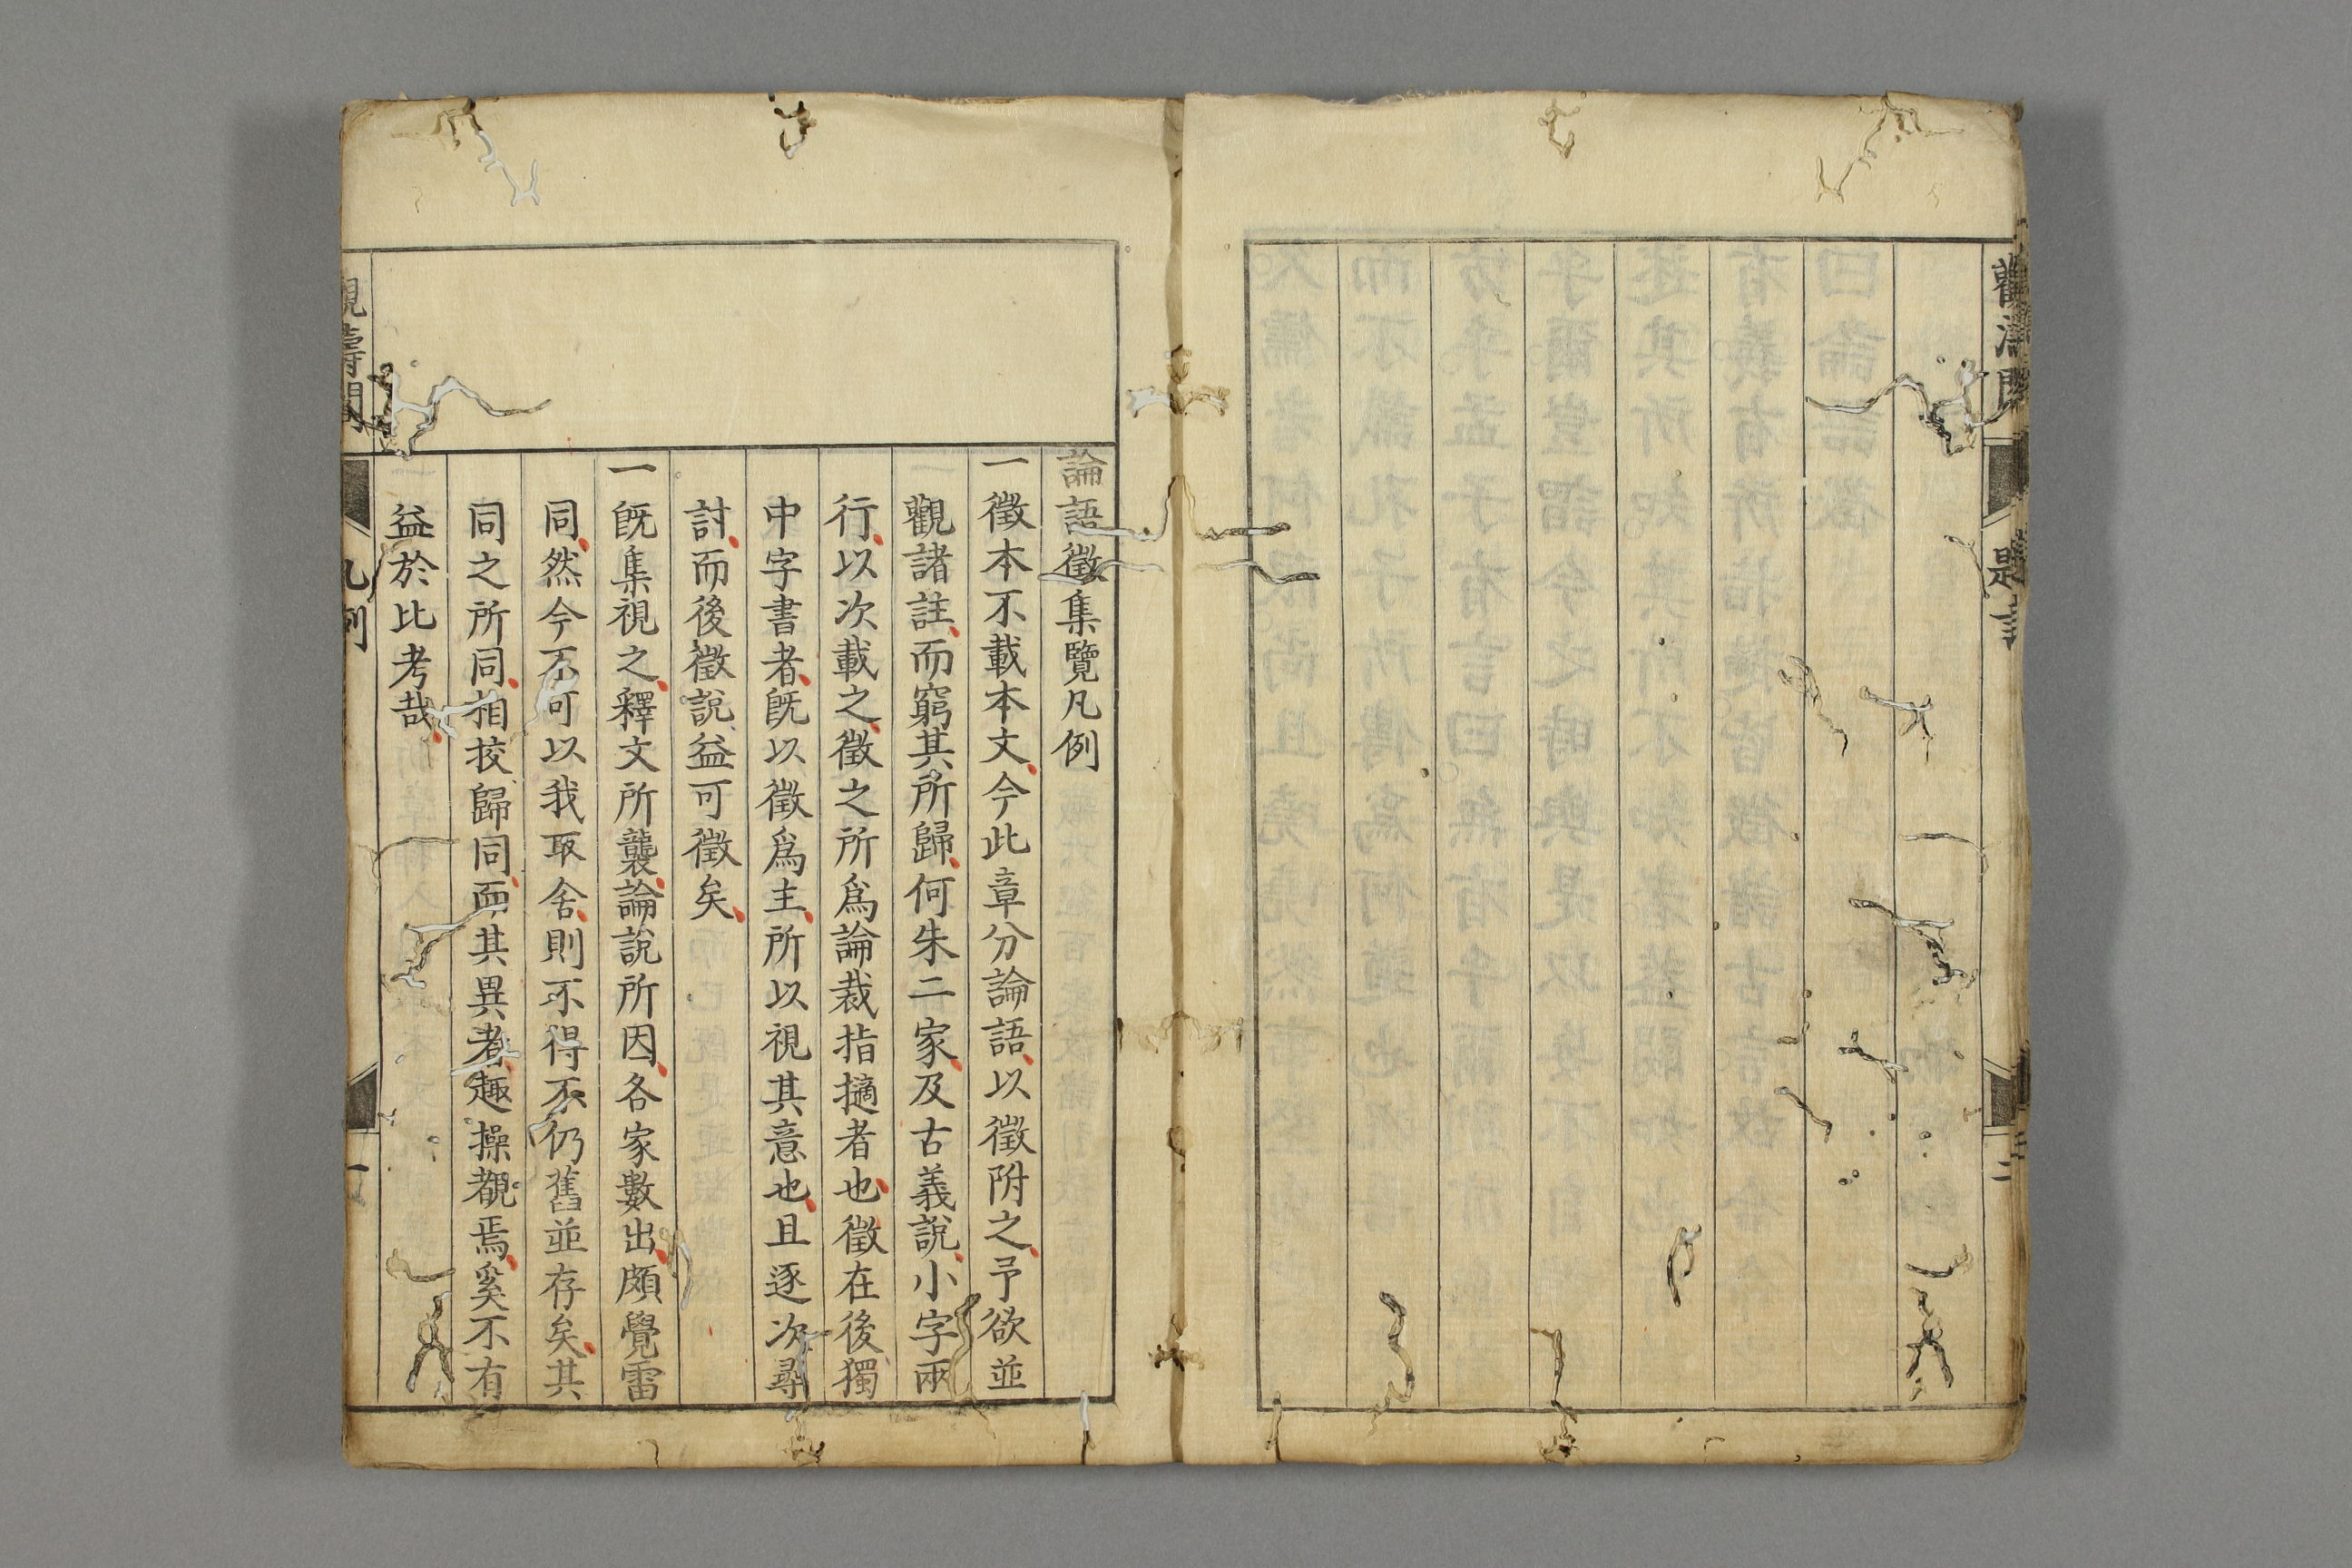 觀濤閣
題言
二
論語徵集覽凡例
一徵本不載本文今此章分論語以徵附之予欲並
觀諸註而窮其所歸何朱二家及古義說小字兩
行以次載之徵之所爲論裁指擿者也徵在後獨
中字書者旣以徵爲主所以視其意也且逐次尋
討而後徵說益可徵矣
一旣集視之釋文所襲論說所因各家數出頗覺雷
同然今不可以我取舍則不得不仍舊並存矣其
同之所同相挍歸同而其異者趣操覩焉奚不有
益於比考哉
觀濤閣
凡例
一